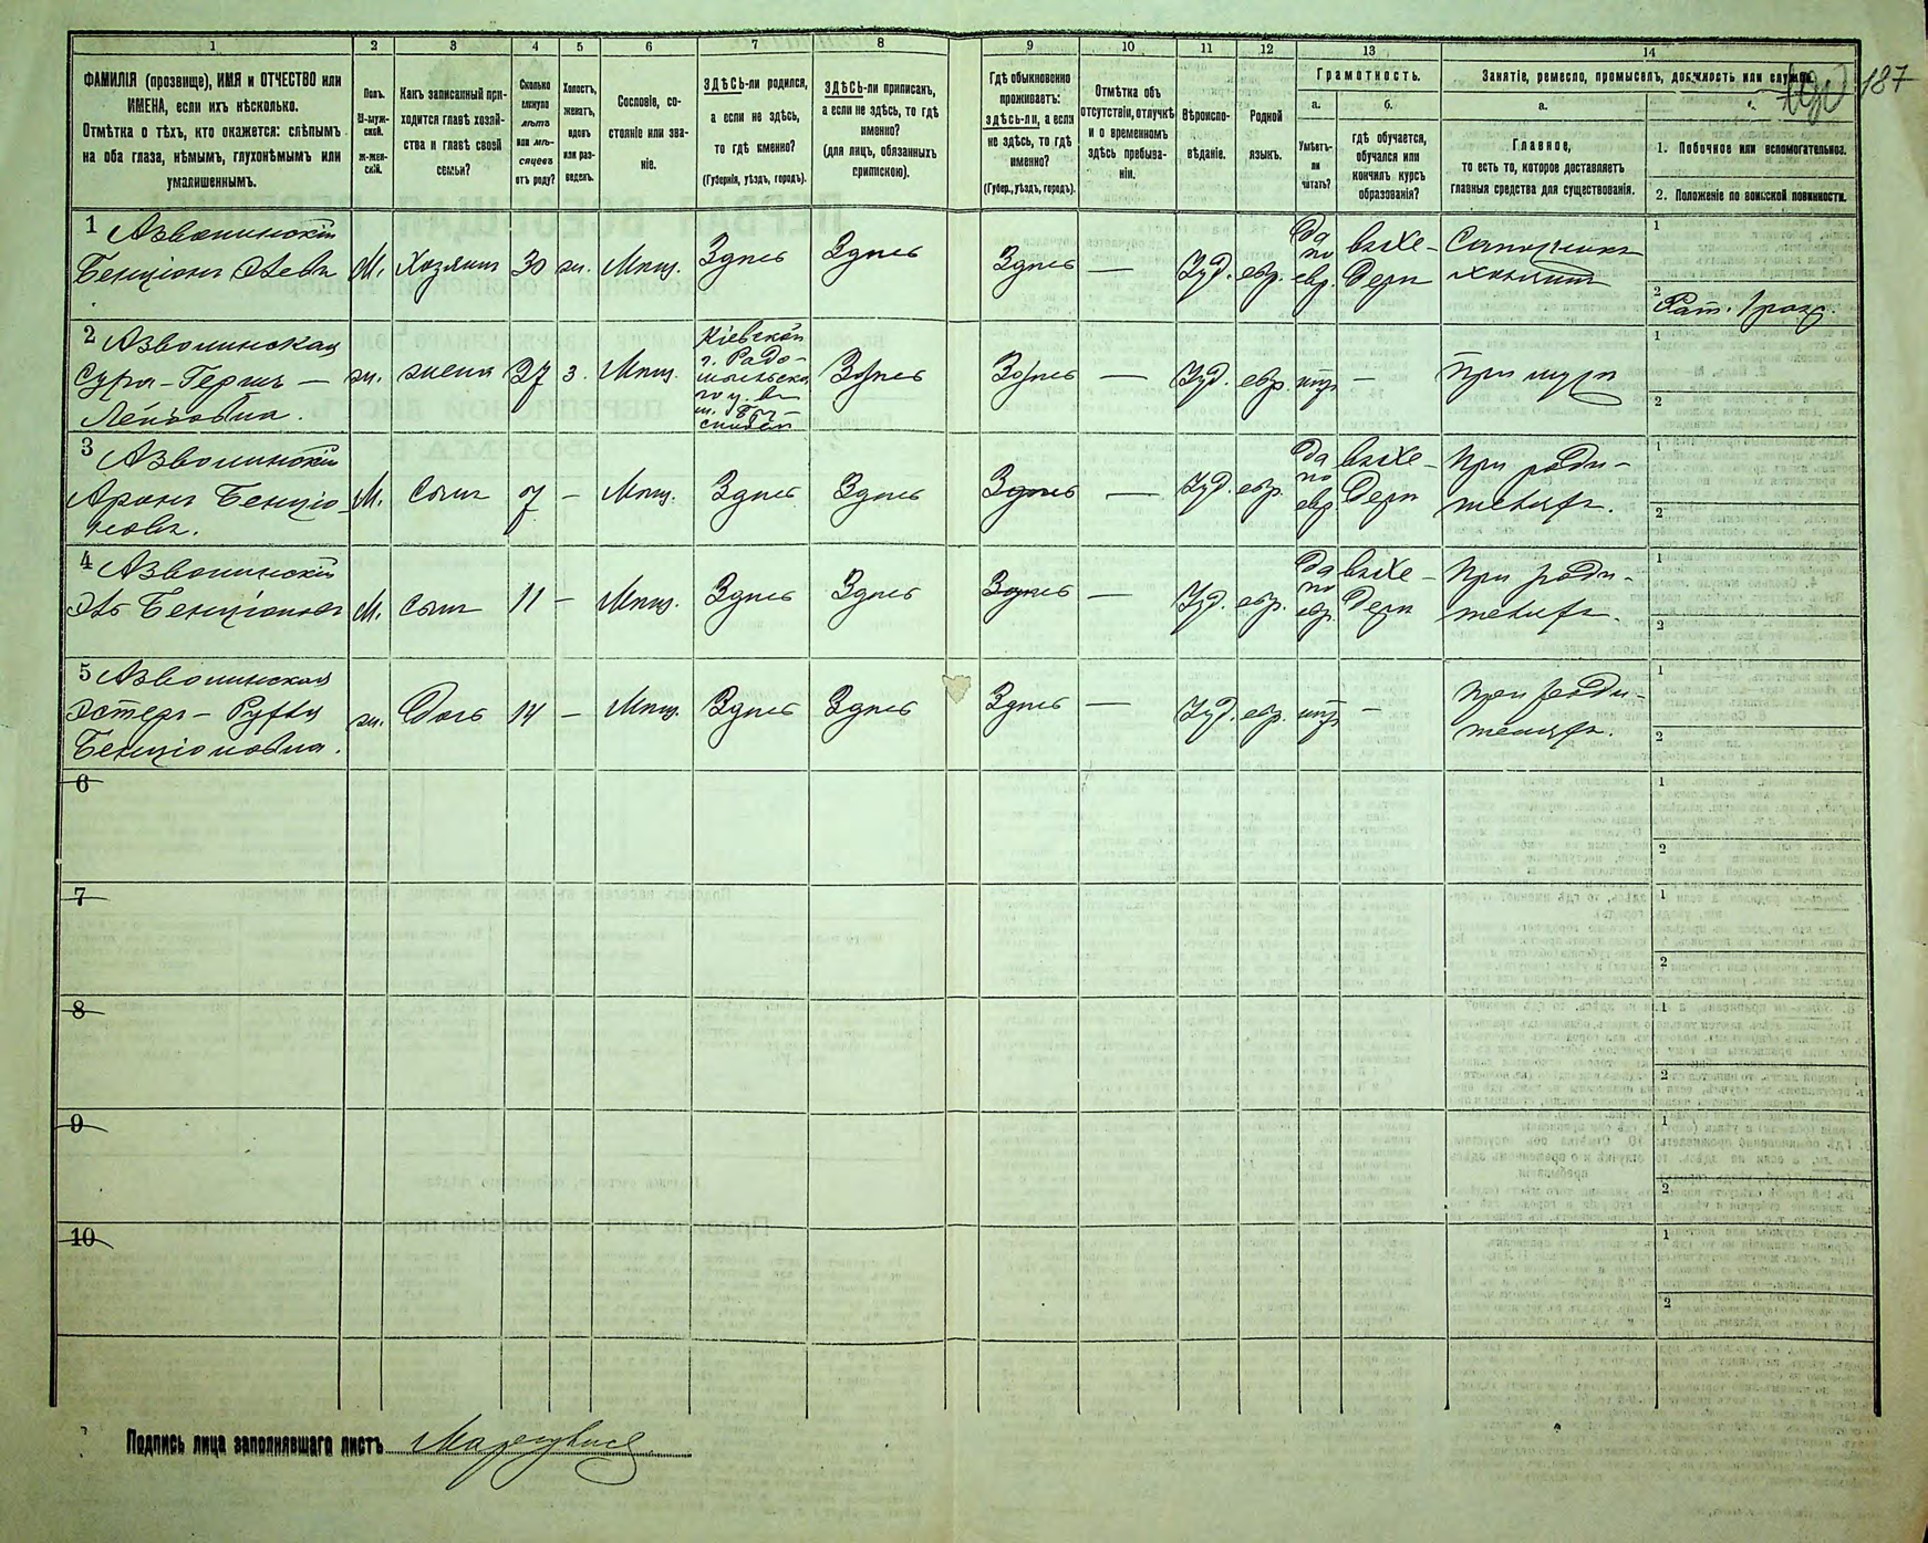 1 2 3 4 5 6 7 8 9 10 11 12 13 14
187
ФАМИЛІЯ (прозвище), ИМЯ и ОТЧЕСТВО или
ИМЕНА, если ихъ нѣсколько.
Отмѣтка о тѣхъ, кто окажется: слѣпымъ
на оба глаза, нѣмымъ, глухонѣмымъ или
умалишеннымъ.
Полъ.
М-муж-
ской.
Ж-жен-
скій.
Какъ записанный при-
ходится главѣ хозяй-
ства и главѣ своей
семьи?
Сколько
минуло
лѣтъ
или мѣ-
сяцевъ
отъ роду?
Холостъ,
женатъ,
вдовъ
или раз-
веденъ.
Сословіе, со-
стояніе или зва-
ніе.
ЗДѢСЬ-ли родился,
а если не здѣсь,
то гдѣ именно?
(Губернія, уѣздъ, городъ).
ЗДѢСЬ-ли приписанъ,
а если не здѣсь, то гдѣ
именно?
(для лицъ, обязанныхъ
припискою).
Гдѣ обыкновенно
проживаетъ:
здѣсь-ли, а если
не здѣсь, то гдѣ
именно?
(Губер., уѣздъ, городъ).
Отмѣтка объ
отсутствіи, отлучкѣ
и о временномъ
здѣсь пребыва-
ніи.
Вѣроиспо-
вѣданіе.
Родной
языкъ.
Грамотность.
а.
Умѣетъ-
ли
читать?
б.
гдѣ обучается,
обучался или
кончилъ курсъ
образованія?
Занятіе, ремесло, промыселъ, должность или служба.
а.
Главное,
то есть то, которое доставляетъ
главныя средства для существованія.
1. Побочное или вспомогательное.
2. Положеніе по воинской повинности.
1 Азволинскій
Бенціонъ Эевъ
М. Хозяинъ 30 ж. Мѣщ. Здѣсь Здѣсь Здѣсь — Іуд. евр.
Да
по
евр.
въ Хе-
дерѣ
Сапожникъ
1
2
2 Азволинская
Сура-Герша —
Лейбовна.
ж. жена 37 з. Мѣщ.
Кіевской
г. Радо-
мысльска
го у.
Здѣсь Здѣсь — Іуд. евр. нѣтъ —
При мужѣ
1
2
3 Азволинскій
Аронъ Бенціо-
новъ.
М. Сынъ 7 — Мѣщ. Здѣсь Здѣсь Здѣсь — Іуд. евр.
Да
по
евр
въ Хе-
дерѣ
При роди-
теляхъ.
1
2
4 Азволинскій
Эль Бенціоновъ
М. Сынъ 11 — Мѣщ. Здѣсь Здѣсь Здѣсь — Іуд. евр.
Да
по
евр.
въ Хе-
дерѣ
При роди-
теляхъ.
1
2
5 Азволинская
Эстеръ-Руфля
Бенціоновна.
ж. Дочь 14 — Мѣщ. Здѣсь Здѣсь Здѣсь — Іуд. евр. нѣтъ —
При роди-
теляхъ.
1
2
6
1
2
7
1
2
8
1
2
9
1
2
10
1
2
Подпись лица заполнявшаго листъ